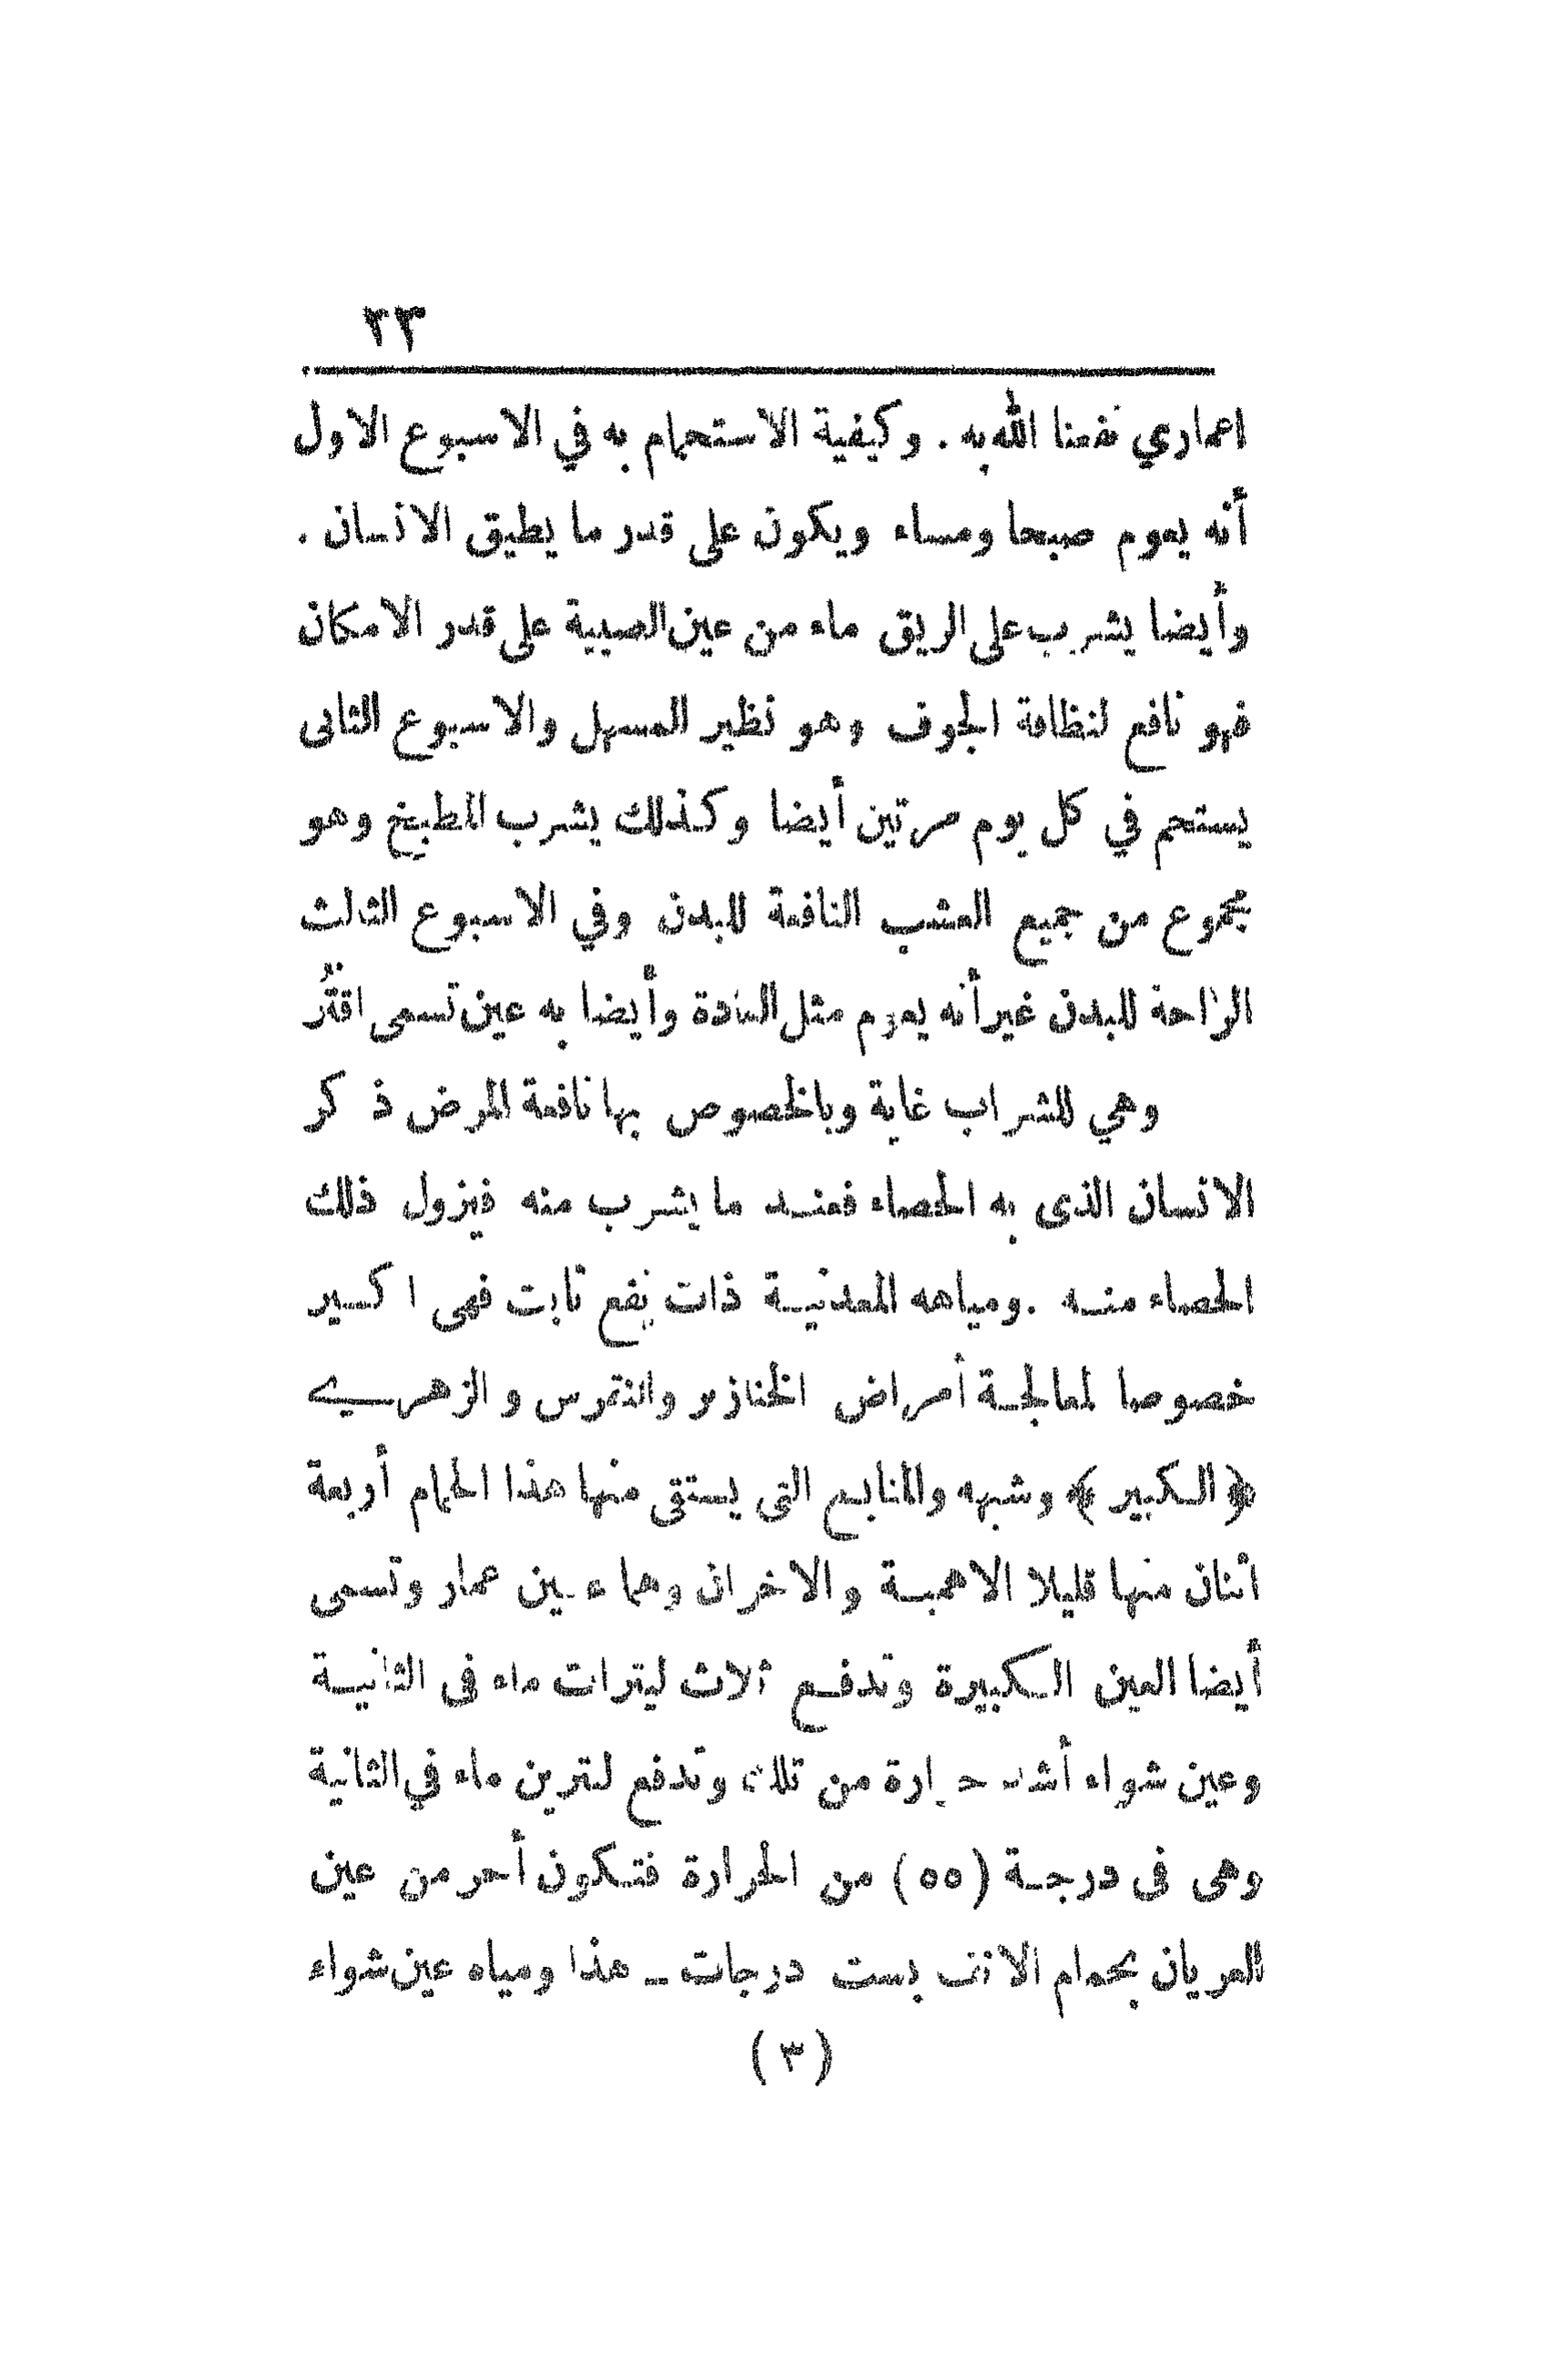 ٢٣
اعماري نفعنا الله به . وكيفية الاستحمام به في الاسبوع الاول
أنه يعوم صبحا ومساء ويكون على قدر ما يطيق الانسان .
وأيضا يشرب على الريق ماء من عين الصبية على قدر الامكان
فهو نافع لنظافة الجوف وهو نظير المسهل والاسبوع الثانى
يستحم في كل يوم مرتين أيضا وكذلك يشرب المطبخ وهو
مجموع من جميع العشب النافعة للبدن وفي الاسبوع الثالث
الراحة للبدن غير أنه يعوم مثل العادة وأيضا به عين تسمى اقتُر
وهي للشراب غاية وبالخصوص بها نافعة المرض ذ كر
الانسان الذى به الحصاء فعند ما يشرب منه فيزول ذلك
الحصاء منه . ومياهه المعدنية ذات نفع ثابت فهى اكسير
خصوصا لمعالجة أمراض الخنازير والنقرس والزهرى
﴿الكبير﴾ وشبهه والمنابع التى يستقى منها هذا الحمام أربعة
اثنان منها قليلا الاهمية والاخران وهما عين عمار وتسمى
أيضا العين الكبيرة وتدفع ثلاث ليترات ماء فى الثانية
وعين شواء أشد حرارة من تلك وتدفع لترين ماء في الثانية
وهى فى درجة (٥٥) من الحرارة فتكون أحر من عين
العريان بحمام الانف بست درجات ــ هذا ومياه عين شواء
(٣)